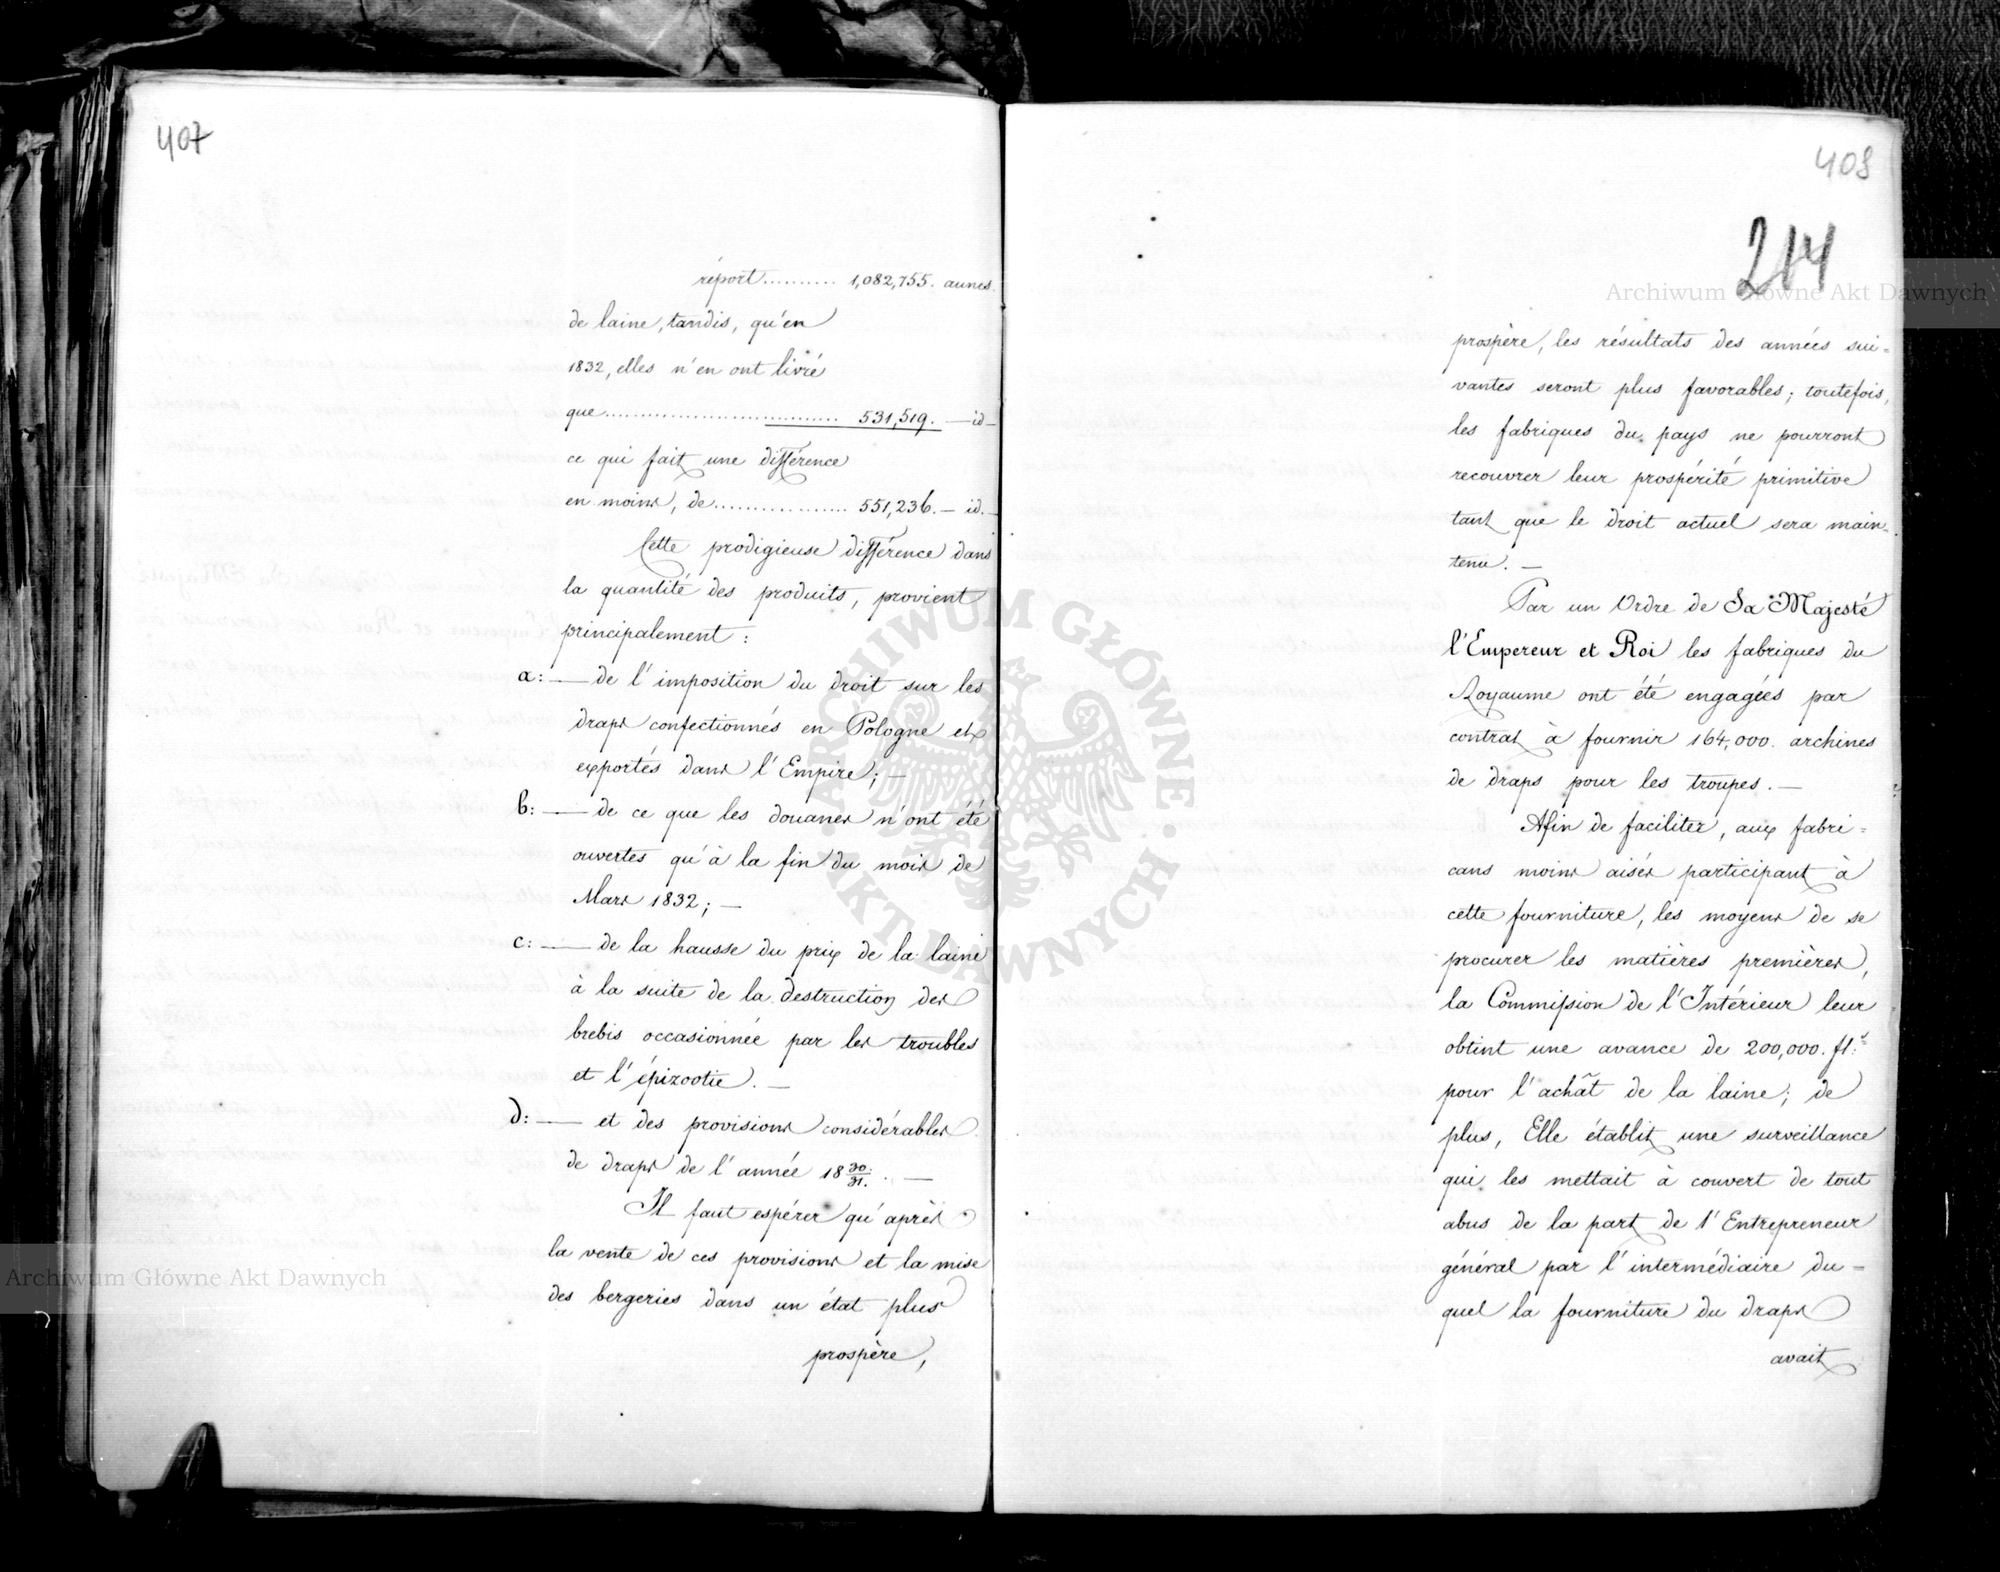 407
réport .......... 1,082,755. aunes
de laine, tandis, qu'en
1832, elles n'en ont livré
que ................................ 531,519. — id —
ce qui fait une différence
en moins, de .................. 551,236. — id. —
Cette prodigieuse différence dans
la quantité des produits, provient
principalement :
a: — de l'imposition du droit sur les
draps confectionnés en Pologne et
exportés dans l'Empire; —
b: — de ce que les douanes n'ont été
ouvertes qu'à la fin du mois de
Mars 1832; —
c: — de la hausse du prix de la laine
à la suite de la destruction des
brebis occasionnée par les troubles
et l'épizootie. —
d: — et des provisions considérables
de draps de l'année 18 30/31. —
Il faut espérer qu'après
la vente de ces provisions et la mise
des bergeries dans un état plus
prospère,
408
214
prospère, les résultats des années sui=
vantes seront plus favorables; toutefois,
les fabriques du pays ne pourront
recouvrer leur prospérité primitive
tant que le droit actuel sera main=
tenu. —
Par un Ordre de Sa Majesté
l'Empereur et Roi les fabriques du
Royaume ont été engagées par
contrat à fournir 164,000. archines
de draps pour les troupes. —
Afin de faciliter, aux fabri=
cans moins aisés participant à
cette fourniture, les moyens de se
procurer les matières premières,
la Commission de l'Intérieur leur
obtint une avance de 200,000. fl:s
pour l'achât de la laine; de
plus, Elle établit une surveillance
qui les mettait à couvert de tout
abus de la part de l'Entrepreneur
général par l'intermédiaire du=
quel la fourniture du draps
avait
Archiwum Główne Akt Dawnych
Archiwum Główne Akt Dawnych
ARCHIWUM GŁÓWNE · AKT DAWNYCH ·